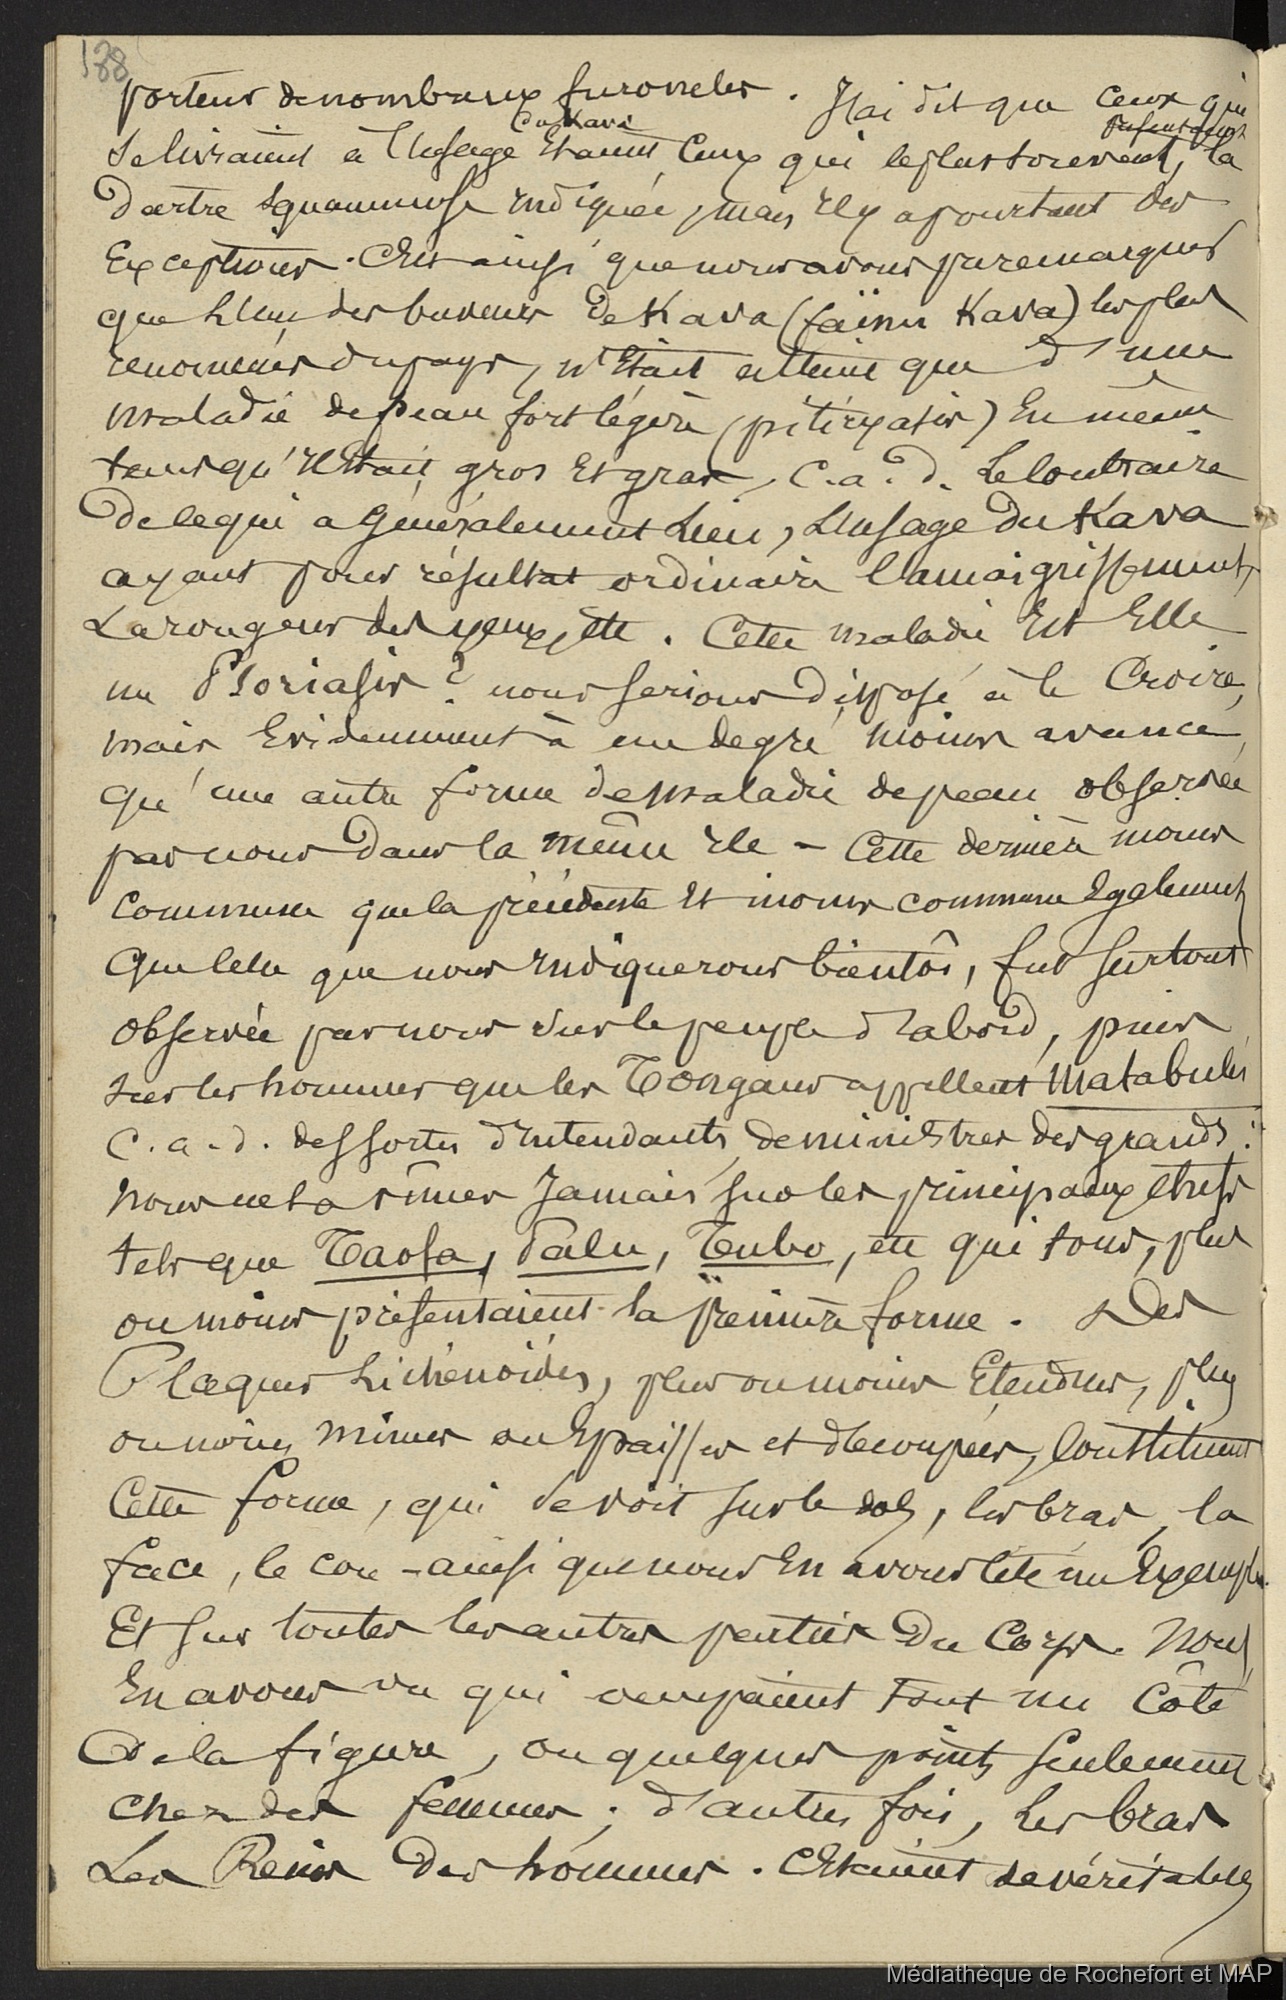 188
porteur de nombreux furoncles. J'ai dit que ceux qui
se livraient à l'usage du Kava étaient ceux qui le plus souvent, présentaient la
dartre squammeuse indiquée, mais il y a pourtant des
Exceptions. C'est ainsi que nous avons pu remarquer
que l'un des buveurs de Kava (faïnu Kava) les plus
renommés du pays, n'était atteint que d'une
maladie de peau fort légère (pitiryasis) En même
tems qu'il était gros et gras, c.a.d. le contraire
de ce qui a généralement lieu, l'usage du Kava
ayant pour résultat ordinaire l'amaigrissement,
La rougeur des yeux, ette. Cette maladie Est Elle
un Psoriasis? nous serions disposé à le Croire,
mais Evidemment à un degré moins avancé,
qu'une autre forme de maladie de peau observée
par nous dans la même ile - Cette dernière moins
commune que la précédente et moins commune également
que celle que nous indiquerons bientôt, fut surtout
observée par nous sur le peuple d'abord, puis
sur les hommes que les Tongans appellent Matabules
c.a.d. des sortes d'intendants, de ministres des grands:
nous ne la vîmes Jamais sur les principaux chefs
tels que Taofa, Palu, Tubo, ette qui tous, plus
ou moins présentaient la première forme. Des
Plaques Lichénoïdes, plus ou moins Etendues, plus
ou moins minces ou Epaisses et découpées, Constituent
Cette forme, qui se voit sur le dos, les bras, la
face, le cou - ainsi que nous En avons cité un Exemple
Et sur toutes les autres parties du Corps. Nous
En avons vu qui occupaient tout un Côté
de la figure, ou quelques points seulement
chez des femmes; d'autres fois, les bras
Les Reins des hommes. C'étaient de véritables
Médiathèque de Rochefort et MAP